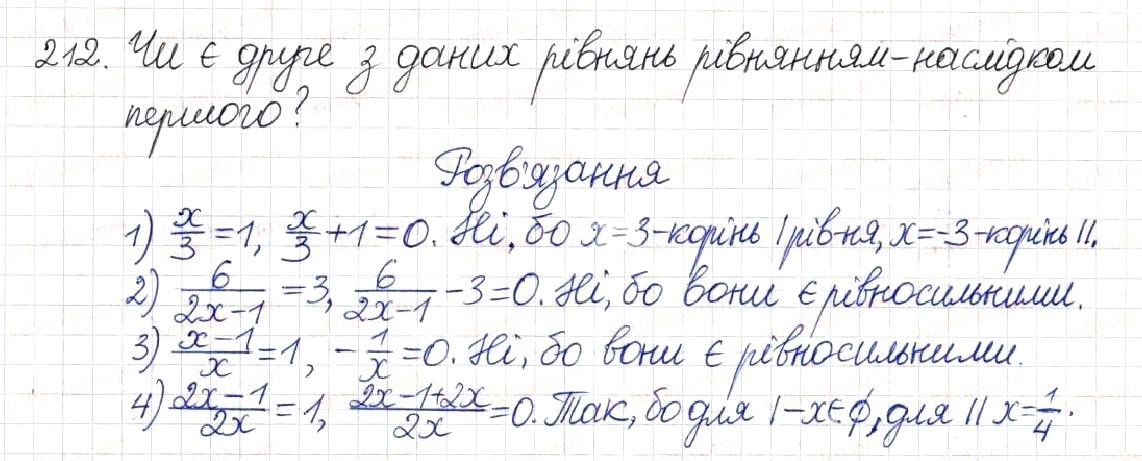 212. Чи є друге з даних рівнянь рівнянням-наслідком
першого?
Розв'язання
1) x/3 = 1, x/3 + 1 = 0. Ні, бо x=3-корінь I рів-ня, x=-3-корінь II.
2) 6/(2x-1) = 3, 6/(2x-1) - 3 = 0. Ні, бо вони є рівносильними.
3) (x-1)/x = 1, -1/x = 0. Ні, бо вони є рівносильними.
4) (2x-1)/2x = 1, (2x-1+2x)/2x = 0. Так, бо для I - x∈∅, для II x=1/4.